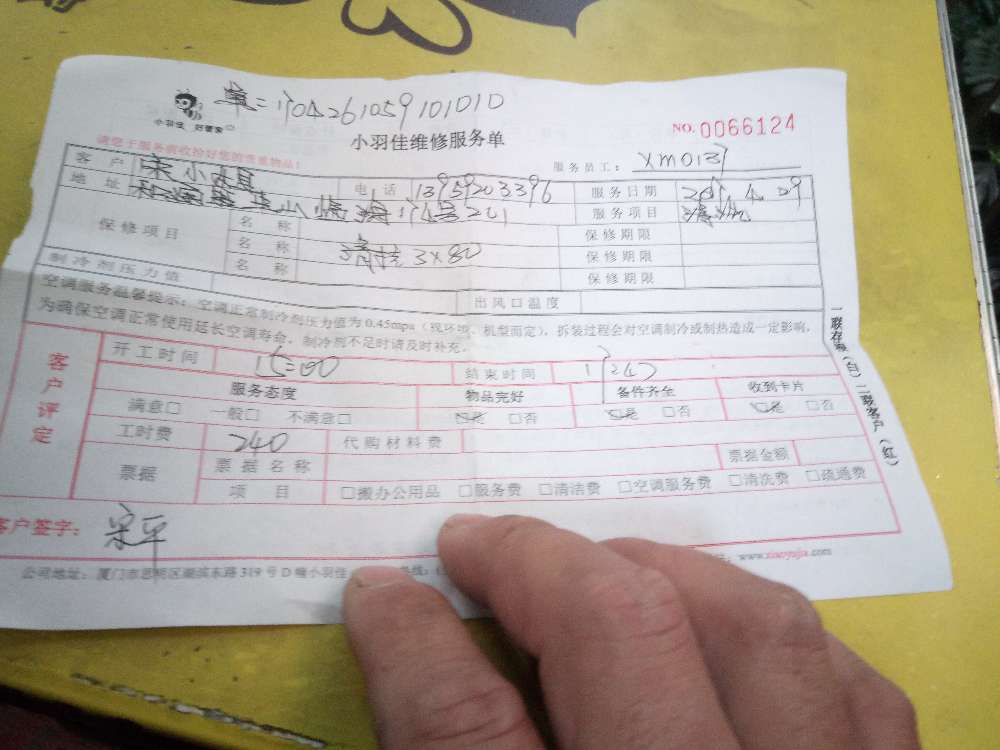 小羽佳 好管家
190426105910101010
NO. 0066124
小羽佳维修服务单
请您于服务前收拾好您的贵重物品！
服务员工： XM0139
客 户 宋小姐 电 话 13959203396 服务日期 2019.4.29
地 址 201 服务项目 清洗
保修项目 名 称 保修期限
名 称 清洗 3×80 保修期限
名 称 保修期限
制冷剂压力值 出风口温度
空调服务温馨提示：空调正常制冷剂压力值为0.45mpa（视环境、机型而定），拆装过程会对空调制冷或制热造成一定影响，
为确保空调正常使用延长空调寿命，制冷剂不足时请及时补充。
客户评定
开工时间 15:00 结束时间
服务态度 物品完好 备件齐全 收到卡片
满意□ 一般□ 不满意□ □是 □否 □是 □否 □是 □否
工时费 240 代购材料费
票据 票据名称 票据金额
项 目 □搬办公用品 □服务费 □清洁费 □空调服务费 □清洗费 □疏通费
客户签字： 宋平
www.xiaoyujia.com
公司地址：厦门市思明区湖滨东路319号D幢小羽佳
一联存根（白） 二联客户（红）